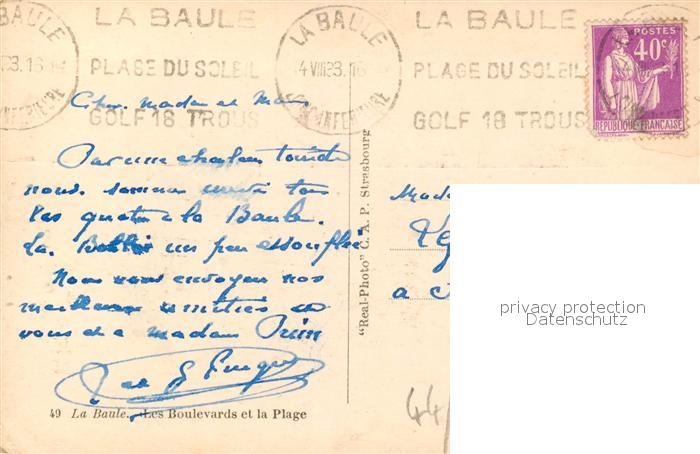 LA BAULE
PLAGE DU SOLEIL
GOLF 18 TROUS
LA BAULE
LA BAULE
PLAGE DU SOLEIL
GOLF 18 TROUS
POSTES
40c
REPUBLIQUE FRANCAISE
Cher madam et
Par une chaleur torride
nous sommes venir tous
les quatre a la Baule.
La un peu essoufflée
Nous vous envoyons nos
meilleures amitiés
vous et a madam
"Real-Photo" C. A. P. Strasbourg
Mada
a
44
49 La Baule. Les Boulevards et la Plage
privacy protection
Datenschutz